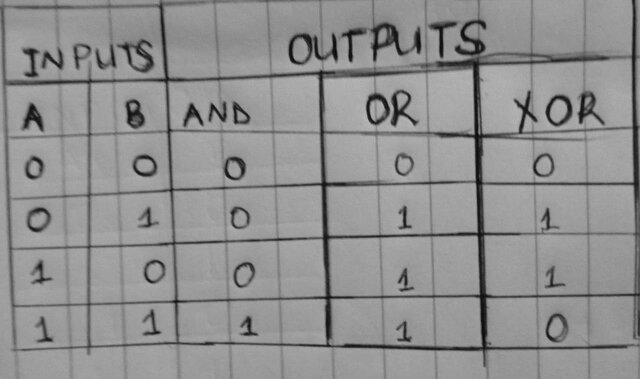 INPUTS OUTPUTS
A B AND OR XOR
0 0 0 0 0
0 1 0 1 1
1 0 0 1 1
1 1 1 1 0